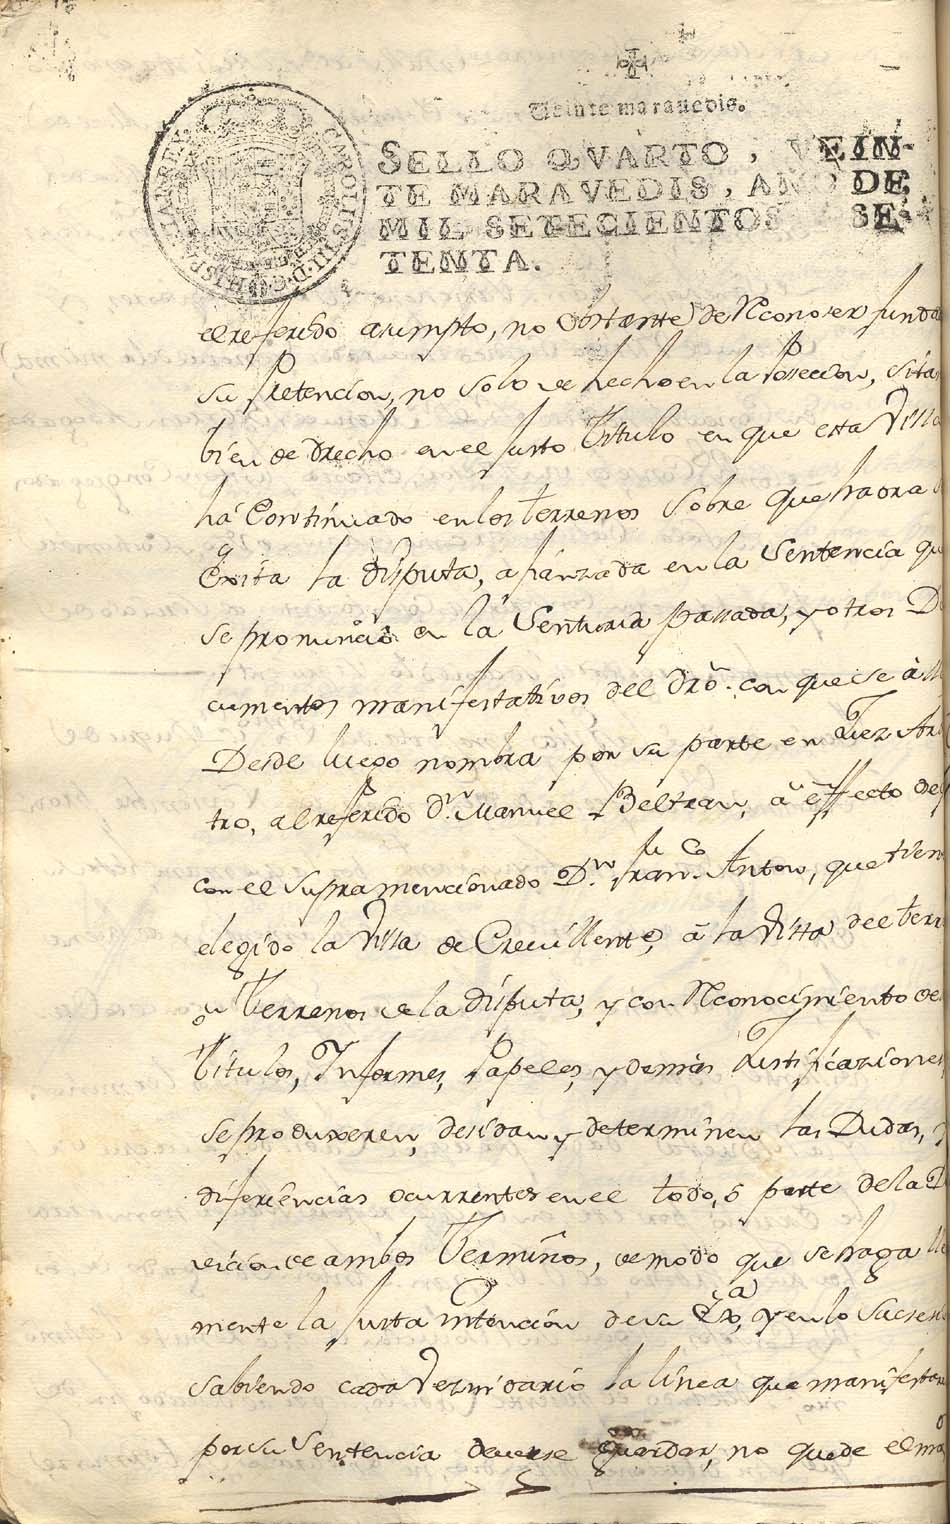 Veinte marauedis.
SELLO QVARTO, VEIN-
TE MARAVEDIS, AÑO DE
MIL SETECIENTOS SE-
TENTA.
CAROLUS III D G HISP REX
el referido asumpto, no obstante de Reconoser funda
su Pretencion, no solo de hecho en la Poseccion, si ta
bien de drecho en el Justo Titulo en que esta Villa
há Continuado en los terrenos sobre que haora
Exsita la disputa, afianzada en la Sentencia qu
se pronunció en la Senturia passada, y otros D
cumentos manifestativos del Dro. con que se à
Desde luego nombra por su parte en Juez Arbi
tro, al referido Dn. Manuel Beltran, à effecto de
con el supramencionado Dn. Franco. Anton, que tien
elegido la Villa de Crevillente, à la Vista del terr
Terrenos de la disputa, y con Reconocimiento de
Titulos, Informes, Papeles, y demás Justificaziones
se produxeren, desidan y determinen las Dudas,
diferiencias ocurrentes en el todo, ó parte de la D
vicion de ambos Terminos, de modo que se haga
mente la Justa intencion de su Exa, y en lo Sucesi
sabiendo cada Vezindario la linea que manifestar
por su Sentencia deverse guardar, no quede el ma